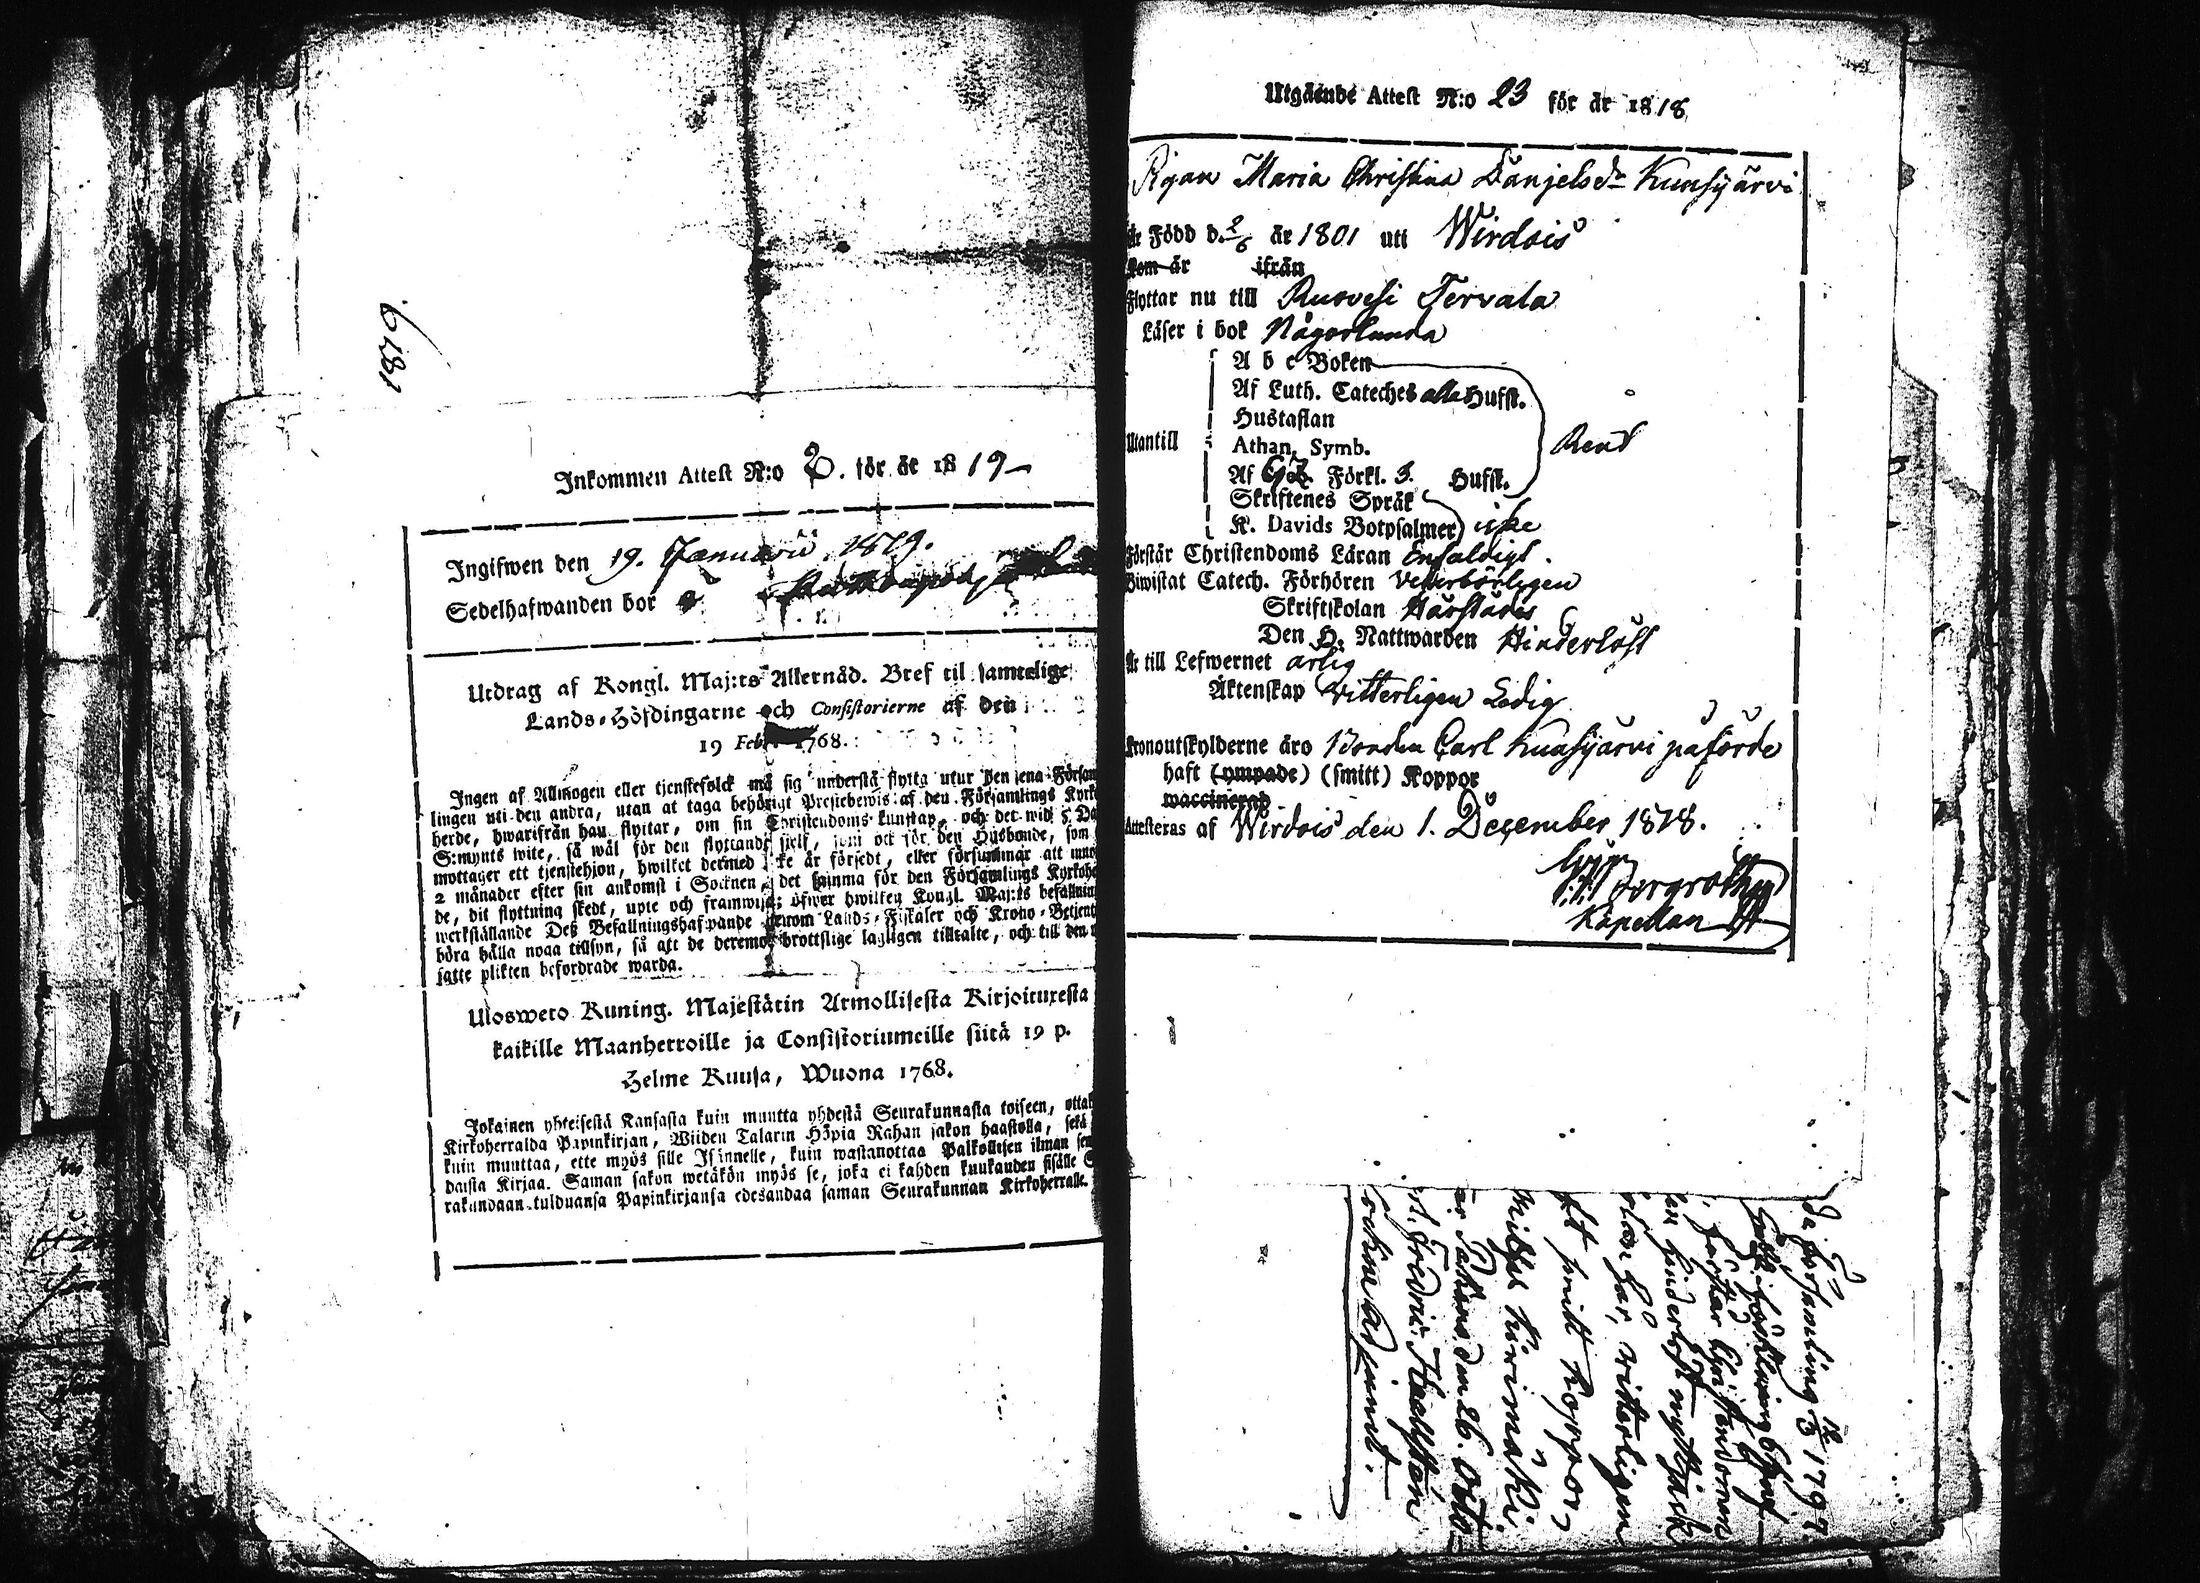 1819
Inkommen Attest N:o 2. för år 1819
Ingifwen den 19. Januarii 1819.
Sedelhafwanden bor
Utdrag af Kongl. Maj:ts Allernåd. Bref til samtelige
Lands-Höfdingarne och Consistorierne af den
19 Febr. 1768.
Ingen af Allmogen eller tjenstefolck må sig understå flytta utur den ena Försam
lingen uti den andra, utan at taga behörigt Prestebewis af den Församlings Kyrko
herde, hwarifrån han flyttar, om sin Christendoms-kunskap, och det wid 5 Da
S:mynts wite, så wäl för den flyttande sielf, som ock för den Husbonde, som
mottager ett tjenstehjon, hwilket dermed icke är försedt, eller försummar att inno
2 månader efter sin ankomst i Socknen, det samma för den Församlings Kyrkohe
de, dit flyttning skedt, upte och framwisa; öfwer hwilken Kongl. Maj:ts befallning
werkställande Deß Befallningshafwande genom Lands-Fiskaler och Krono-Betjent
böra hålla noga tillsyn, så att de deremot brottslige lagligen tilltalte, och till den
satte plikten befordrade warda.
Ulosweto Kuning. Majestätin Armollisesta Kirjoituxesta
kaikille Maanherroille ja Consistoriumeille siitä 19 p.
Helme Kuusa, Wuona 1768.
Jokainen yhteisestä Kansasta kuin muutta yhdestä Seurakunnasta toiseen, ottak
Kirkoherralda Papinkirjan, Wiiden Talarin Hopia Rahan sakon haastolla, sekä
kuin muuttaa, ette myös sille Isännelle, kuin wastanottaa Palkollisen ilman sen
daista Kirjaa. Saman sakon wetäkön myös se, joka ei kahden kuukauden sisälle S
rakundaan tulduansa Papinkirjansa edesandaa saman Seurakunnan Kirkoherralle.
Utgående Attest N:o 23 för år 1818
Pigan Maria Christina Danjelsdr Kunsijärvi
är Född d. 2/6 år 1801 uti Wirdois
kom år ifrån
Flyttar nu till Ruovesi Tervala
Läser i bok Någorlunda
A b c Boken
Af Luth. Cateches alla Hufst.
Hustaflan
Utantill Athan. Symb. Rent
Af Förkl. 3. Hufst.
Skriftenes Språk
K. Davids Botpsalmer icke
Förstår Christendoms Läran Enfaldigt.
Biwistat Catech. Förhören Vederbörligen
Skriftskolan Härstädes
Den H. Nattwarden Hinderlöst
är till Lefwernet ärlig
Äktenskap Vitterligen Ledig
Kronoutskylderne äro Bonden Carl Kunsijärvi påförde
haft (ympade) (smitt) Koppor
waccinerad
Attesteras af Wirdois den 1. December 1818.
Bergroth
Kapellan
da församling 12/3 1797.
förklaring
förstår Christendomen
hinderlöst nyttjat
här, vitterligen
haft smitt koppor
Kirimäki
den 26. Octob
Fredric Thaelystén
adjunct.